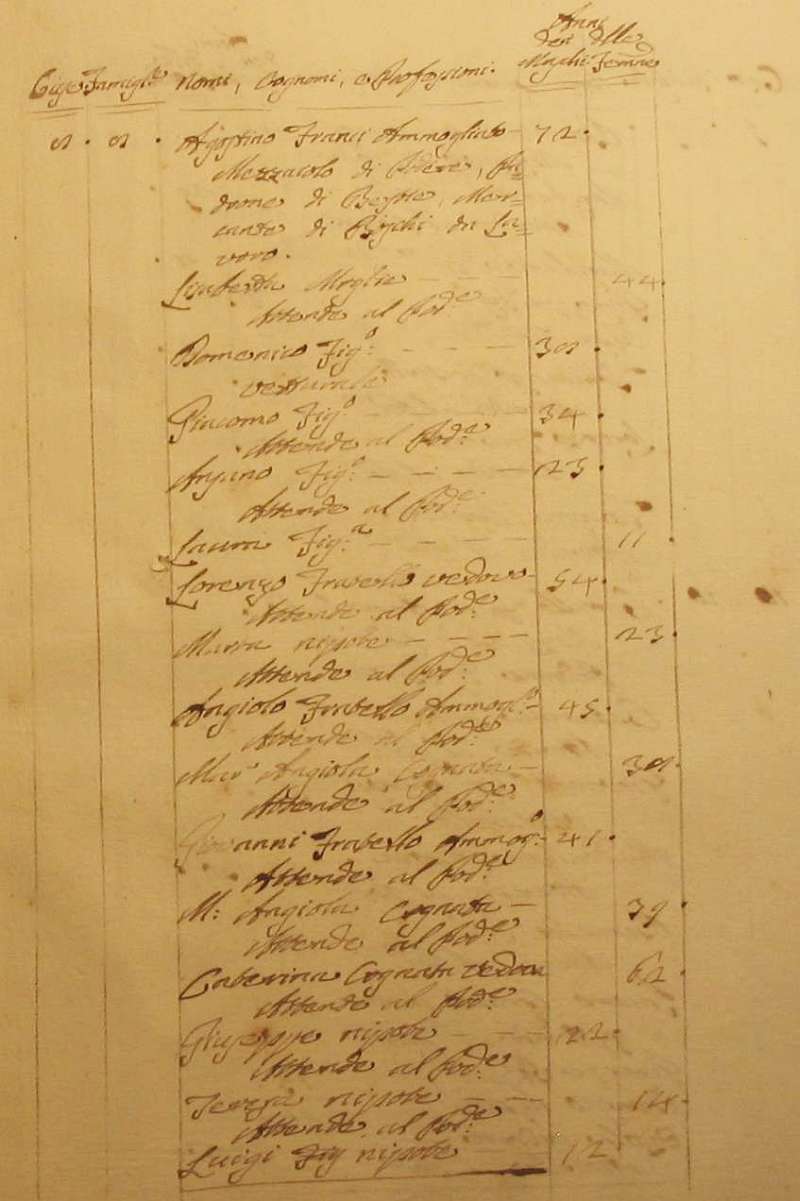 Anni
dei delle
Case Famigle Nomi, Cognomi, e Professioni. Maschi Femine
Agostino Franci Ammogliato 72.
Mezzaiolo di Podere, Pa=
drone di Bestie, Mer=
cante di Cer=
vovo.
Moglie 44
Attende al Pod:e
Domenico Fig:o
vetturale
Giacomo Fig:o 34
Attende al Pod:e
Ansano Fig:o 23
Attende al Pod:e
Laura Fig:a 11
Lorenzo Fratello vedovo 54.
Attende al Pod:e
Marta nipote 23
Attende al Pod:e
Angiolo Fratello Ammog:o 45.
Attende al Pod:e
Mar:a Angiola Cognata
Attende al Pod:e
Giovanni Fratello Ammog:o 41.
Attende al Pod:e
M: Angiola Cognata 39
Attende al Pod:e
Caterina Cognata vedova 62
Attende al Pod:e
Giuseppe nipote 22
Attende al Pod:e
Teresa nipote 14
Attende al Pod:e
Luigi Fig nipote 12